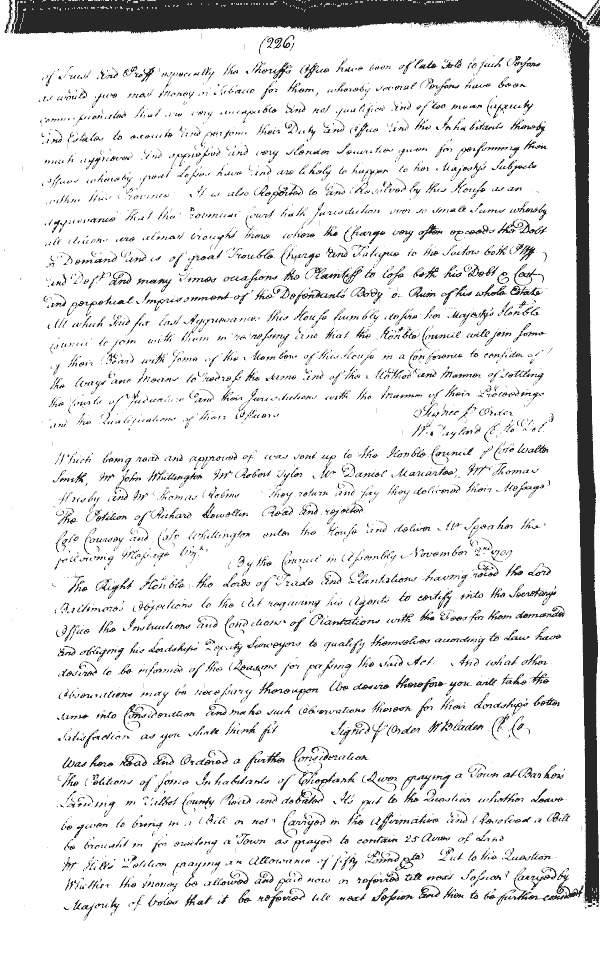 (226)
of Trust and Proffit especially the Sheriffs Office have been of late sold to such Persons
as would give most Money or Tobacco for them, whereby several Persons have been
commissionated that are very uncapable and not qualified and of too mean Capacity
and Estates to execute and perform their Duty and Office and the Inhabitants thereby
much aggrieved and oppressed and very slender Securities given for performing their
Offices whereby great Losses have and are likely to happen to her Majesty's Subjects
within this Province It is also Reported to and Resolved by this House as an
Aggrievance that the Provincial Court hath Jurisdiction over so small Sums whereby
all Actions are almost brought there where the Charge very often exceeds the Debt
in Demand and is of great Trouble Charge and Fatigue to the Suitors both Pltff
and Deft and many Times occasions the Plaintiff to lose both his Debt & Cost
and perpetual Imprisonment of the Defendants Body or Ruin of his whole Estate
All which said last Aggrievances this House humbly desire her Majesty's Honble
Council to join with them in redressing and that the Honble Council will join some
of their Board with some of the Members of this House in a Conference to consider of
the Ways and Means to redress the same and of the Method and Manner of settling
the Courts of Judicature and their Jurisdictions with the Manner of their Proceedings
and the Qualifications of their Officers
Signed p Order
W Taylard Cl Ho Del
Which being read and approved of was sent up to the Honble Council by Colo Walter
Smith, Mr John Whittington Mr Robert Tyler Mr Daniel Mariartee, Mr Thomas
Greesby and Mr Thomas Robins they return and say they delivered their Message
The Petition of Richard Lewellin Read and rejected
Colo Coursey and Colo Whittington enter the House and deliver Mr Speaker the
following Message Vizt
By the Council in Assembly November 2nd 1709
The Right Honble the Lords of Trade and Plantations having noted the Lord
Baltimore's Objections to the Act requiring his Agents to certify into the Secretary's
Office the Instructions and Conditions of Plantations with the Fees for them demanded
and obliging his Lordships Deputy Surveyors to qualify themselves according to Law have
desired to be informed of the Reasons for passing the said Act. And what other
Observations may be necessary thereupon We desire therefore you will take the
same into Consideration and make such Observations thereon for their Lordship's better
Satisfaction as you shall think fit
Signed p Order W Bladen Cl Co
Was here read and Ordered a further Consideration
The Petitions of some Inhabitants of Choptank River praying a Town at Barker's
Landing in Talbot County Read and debated It's put to the Question whether Leave
be given to bring in a Bill or not? Carryed in the Affirmative and Resolved a Bill
be brought in for erecting a Town as prayed to contain 25 Acres of Land
Mr Hill's Petition praying an Allowance of fifty Pound Put to the Question
Whether the Money be allowed and paid now or referred till next Session? Carryed by
Majority of Votes that it be referred till next Session and then to be further considered